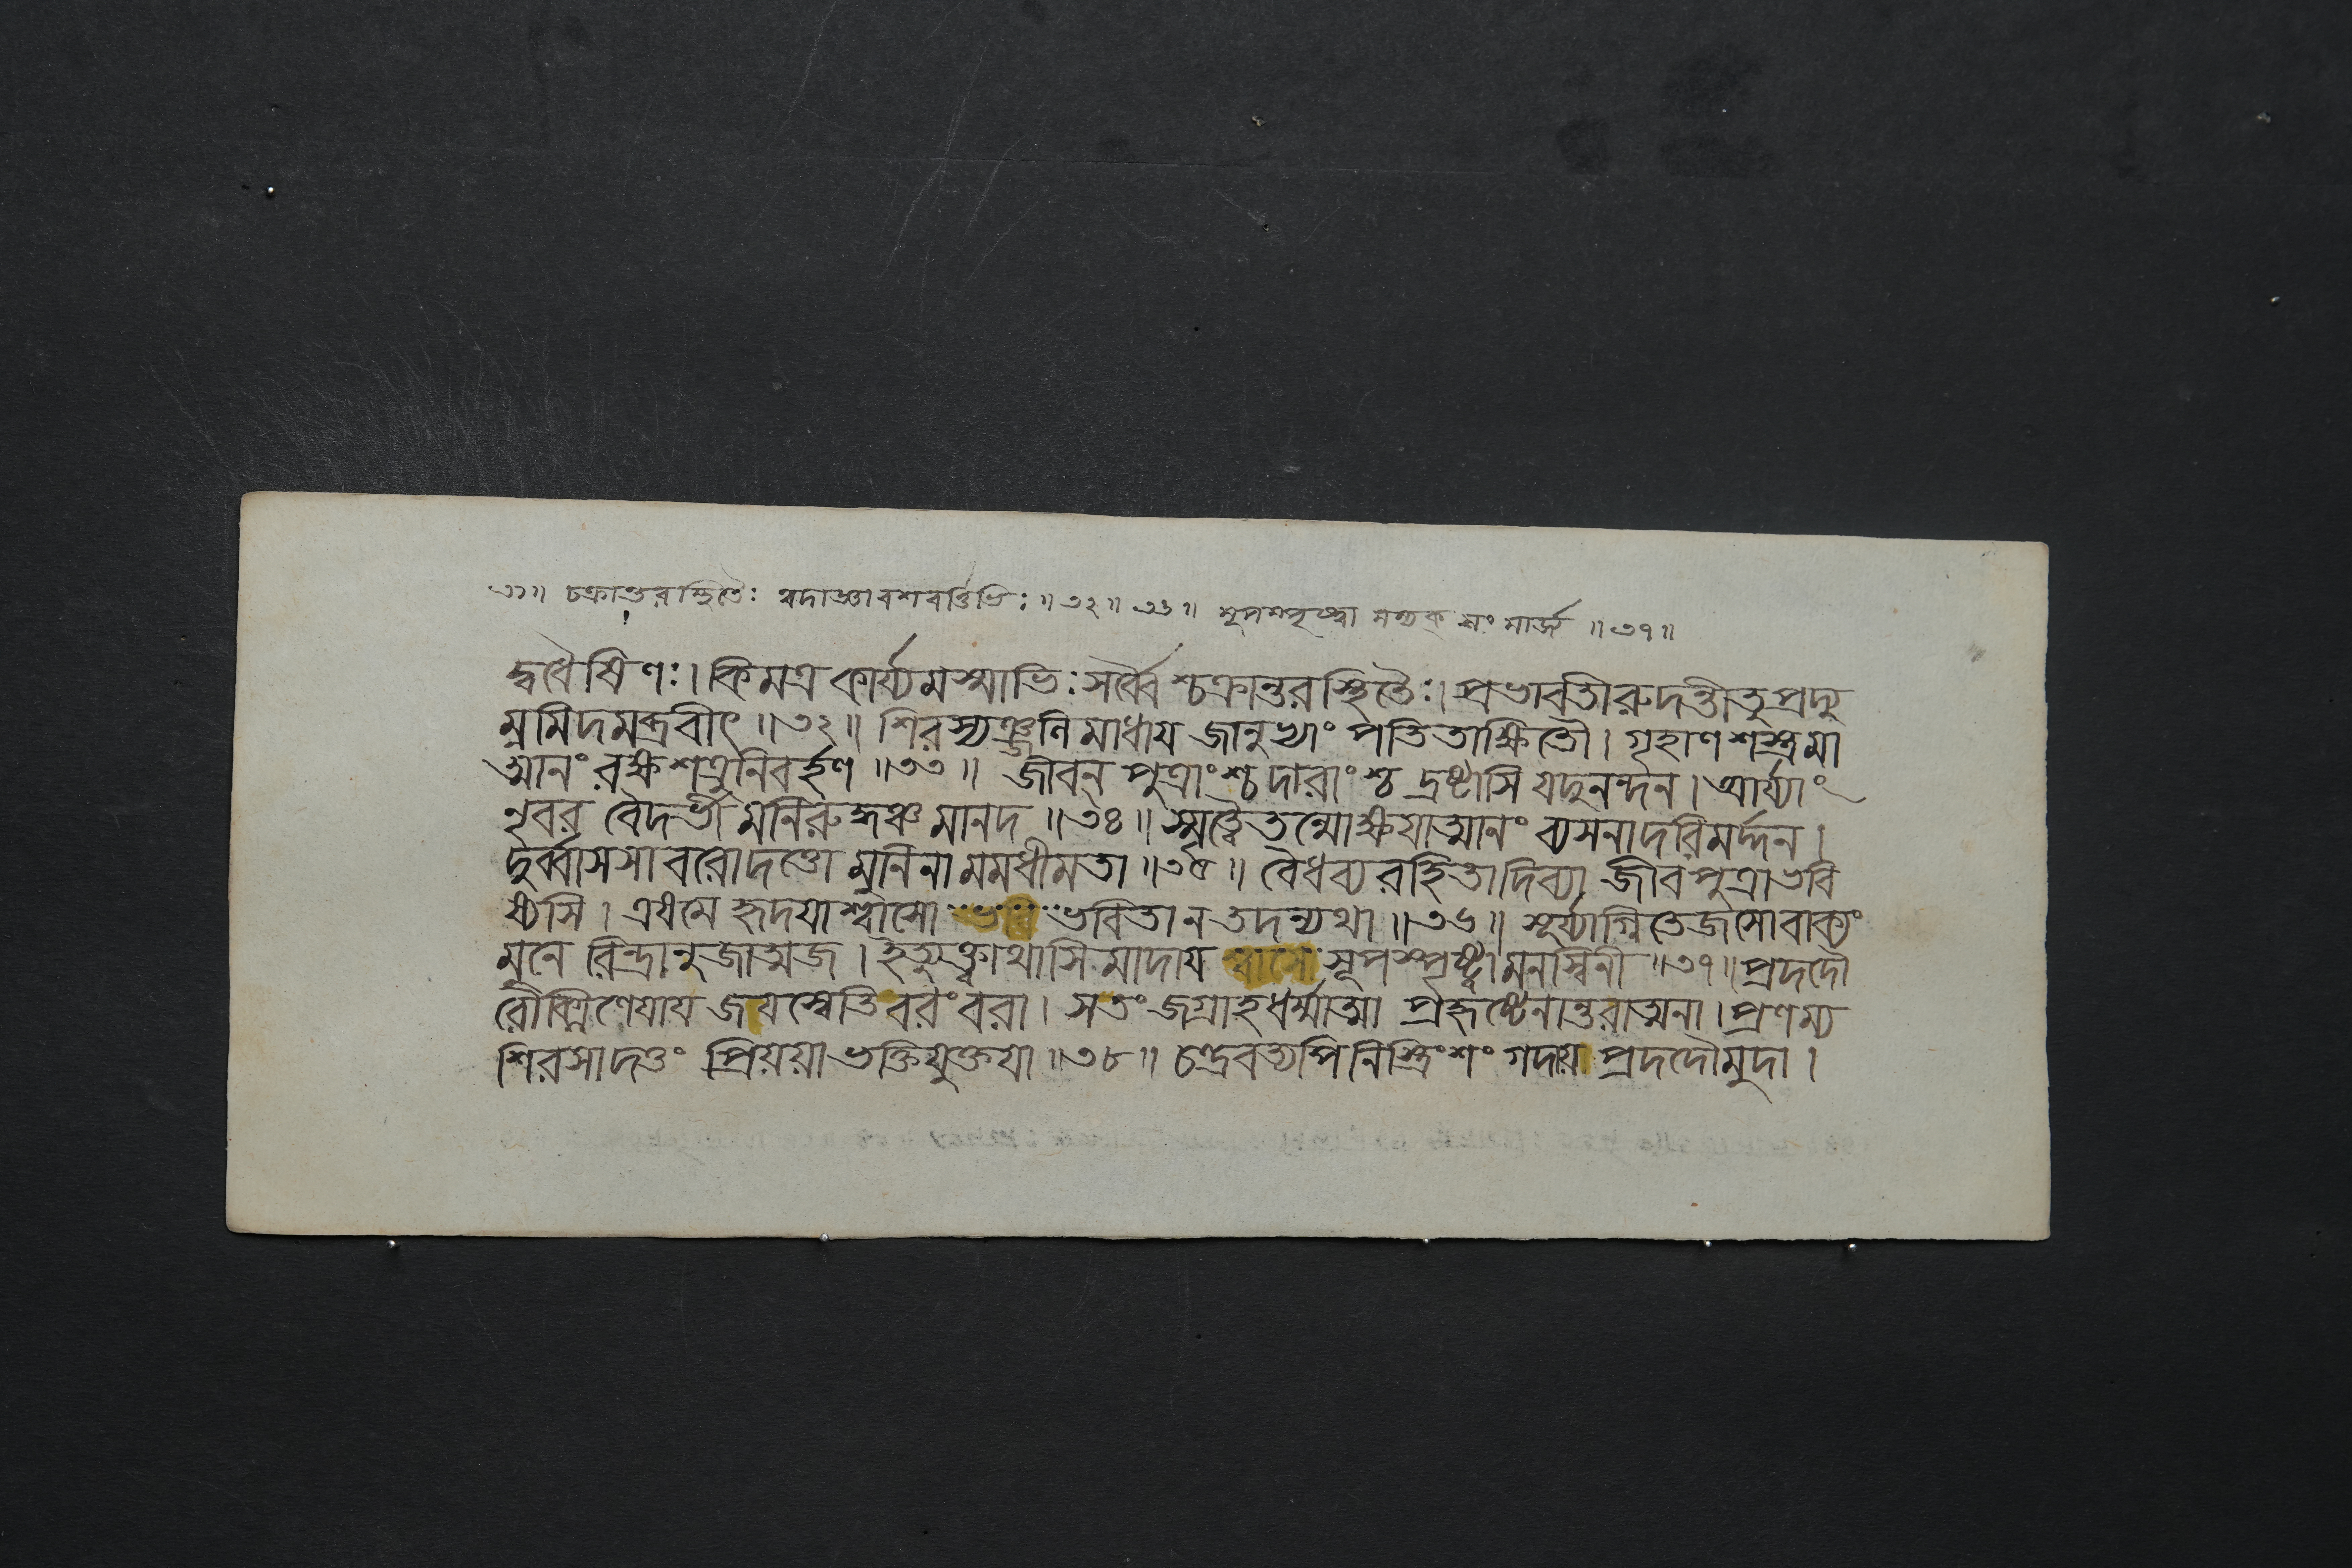 ৩১॥ চক্রান্তরস্থিতৈঃ ৰদাজ্ঞাবশবর্ত্তিভিঃ॥৩২॥ ৩৩॥ সূপস্পৃষ্ট্বা সম্যক্ সংমার্জ্য ॥৩৭॥
দ্বধৈষিণঃ। কিমত্র কার্য্যমস্মাভিঃ সর্ব্বৈশ্চক্রান্তরস্থিতৈঃ। প্রভাবতীরুদন্তীতুপ্রদ্যু
ম্নমিদমব্রবীৎ ॥৩২॥ শিরস্যঞ্জলিমাধায় জানুভ্যাং পতিতাক্ষিতৌ। গৃহাণ শস্ত্রমা
ত্মানং রক্ষ শত্রুনিবর্হণ ॥৩৩॥ জীবন্ পুত্রাংশ্চ দারাংশ্চ দ্রষ্টাসি যদুনন্দন। আর্য্যাং
নৃবর বৈদর্ভীমনিরুদ্ধঞ্চ মানদ ॥৩৪॥ স্মৃত্বৈতন্মোক্ষয়াত্মানং ব্যসনাদরিমর্দ্দন।
দুর্ব্বাসসা বরোদত্তো মুনিনা মমধীমতা ॥৩৫॥ বৈধব্যরহিতাদিব্যা জীবপুত্রাভবি
ষ্যসি। এষমে হৃদয়াশ্বাসো ভবি ভবিতা ন তদন্যথা ॥৩৬॥ সূর্য্যাগ্নিতেজসোবাক্যং
মুনে রিন্দ্রানুজাত্মজ। ইত্যুক্ত্বাথাসিমাদায় শ্বাসো সূপস্পৃষ্ট্বা মনস্বিনী ॥৩৭॥ প্রদদৌ
রৌক্মিণেয়ায় জয়স্বেতি বরংবরা। সতং জগ্রাহ ধর্ম্মাত্মা প্রহৃষ্টেনান্তরাত্মনা। প্রণম্য
শিরসাদত্তং প্রিয়য়া ভক্তিযুক্তয়া ॥৩৮॥ চন্দ্রবত্যপি নিস্ত্রিংশং গদায় প্রদদৌমুদা।